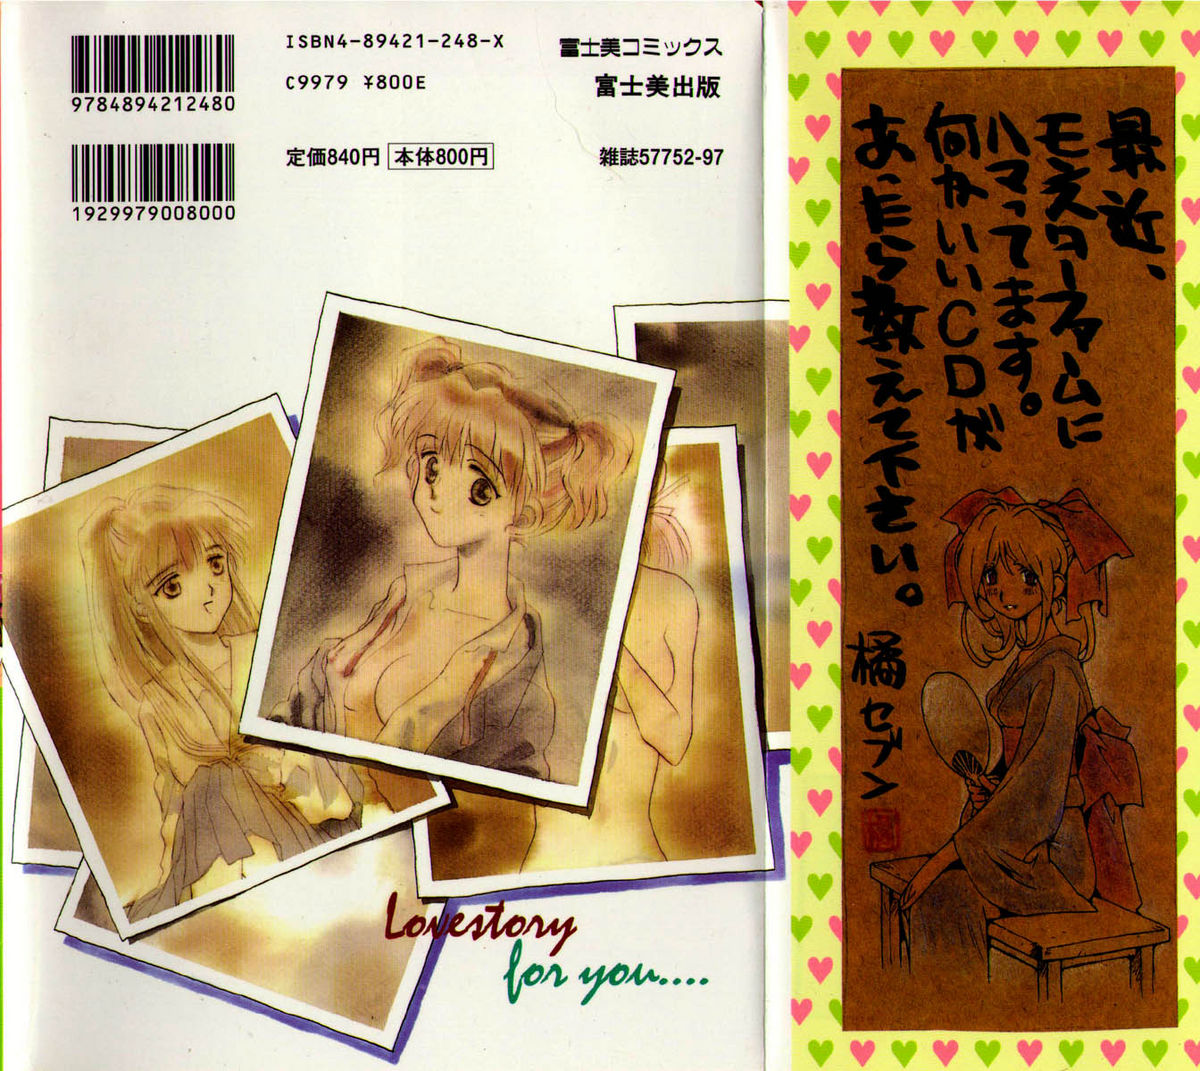 ISBN4-89421-248-X
C9979 ¥800E
9784894212480
富士美コミックス
富士美出版
定価840円 本体800円
雑誌57752-97
1929979008000
Lovestory
for you....
最近、
モンスターファームに
ハマってます。
何かいいCDが
あったら教えて下さい。
橘セブン